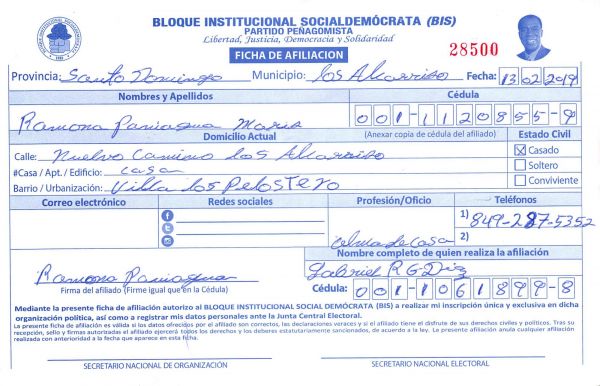 BLOQUE INSTITUCIONAL SOCIALDEMÓCRATA (BIS)
PARTIDO PEÑAGOMISTA
Libertad, Justicia, Democracia y Solidaridad
FICHA DE AFILIACION
28500
Provincia: Santo Domingo Municipio: los Alcarriso Fecha: 13 02 2019
Nombres y Apellidos Cédula
Ramona Paniagua Maria 001-1120855-9
Domicilio Actual (Anexar copia de cédula del afiliado) Estado Civil
Calle: nuelvo Camino los Alcarriso Casado
#Casa / Apt. / Edificio: casa Soltero
Barrio / Urbanización: Villa los Pelostero Conviviente
Correo electrónico Redes sociales Profesión/Oficio Teléfonos
1) 849-287-5352
2)
de casa
Nombre completo de quien realiza la afiliación
Ramona Paniagua Gabriel R G. Diaz
Firma del afiliado (Firme igual que en la Cédula) Cédula: 001-1061899-8
Mediante la presente ficha de afiliación autorizo al BLOQUE INSTITUCIONAL SOCIAL DEMÓCRATA (BIS) a realizar mi inscripción única y exclusiva en dicha
organización política, así como a registrar mis datos personales ante la Junta Central Electoral.
La presente ficha de afiliación es válida si los datos ofrecidos por el afiliado son correctos, las declaraciones veraces y si el afiliado tiene el disfrute de sus derechos civiles y políticos. Tras su
recepción, sello y firmas autorizadas el afiliado ejercerá todos los derechos y los deberes estatutariamente sancionados, de acuerdo a la ley. La presente afiliación anula cualquier afiliación
realizada con anterioridad a la fecha que aparece en esta ficha.
SECRETARIO NACIONAL DE ORGANIZACIÓN SECRETARIO NACIONAL ELECTORAL